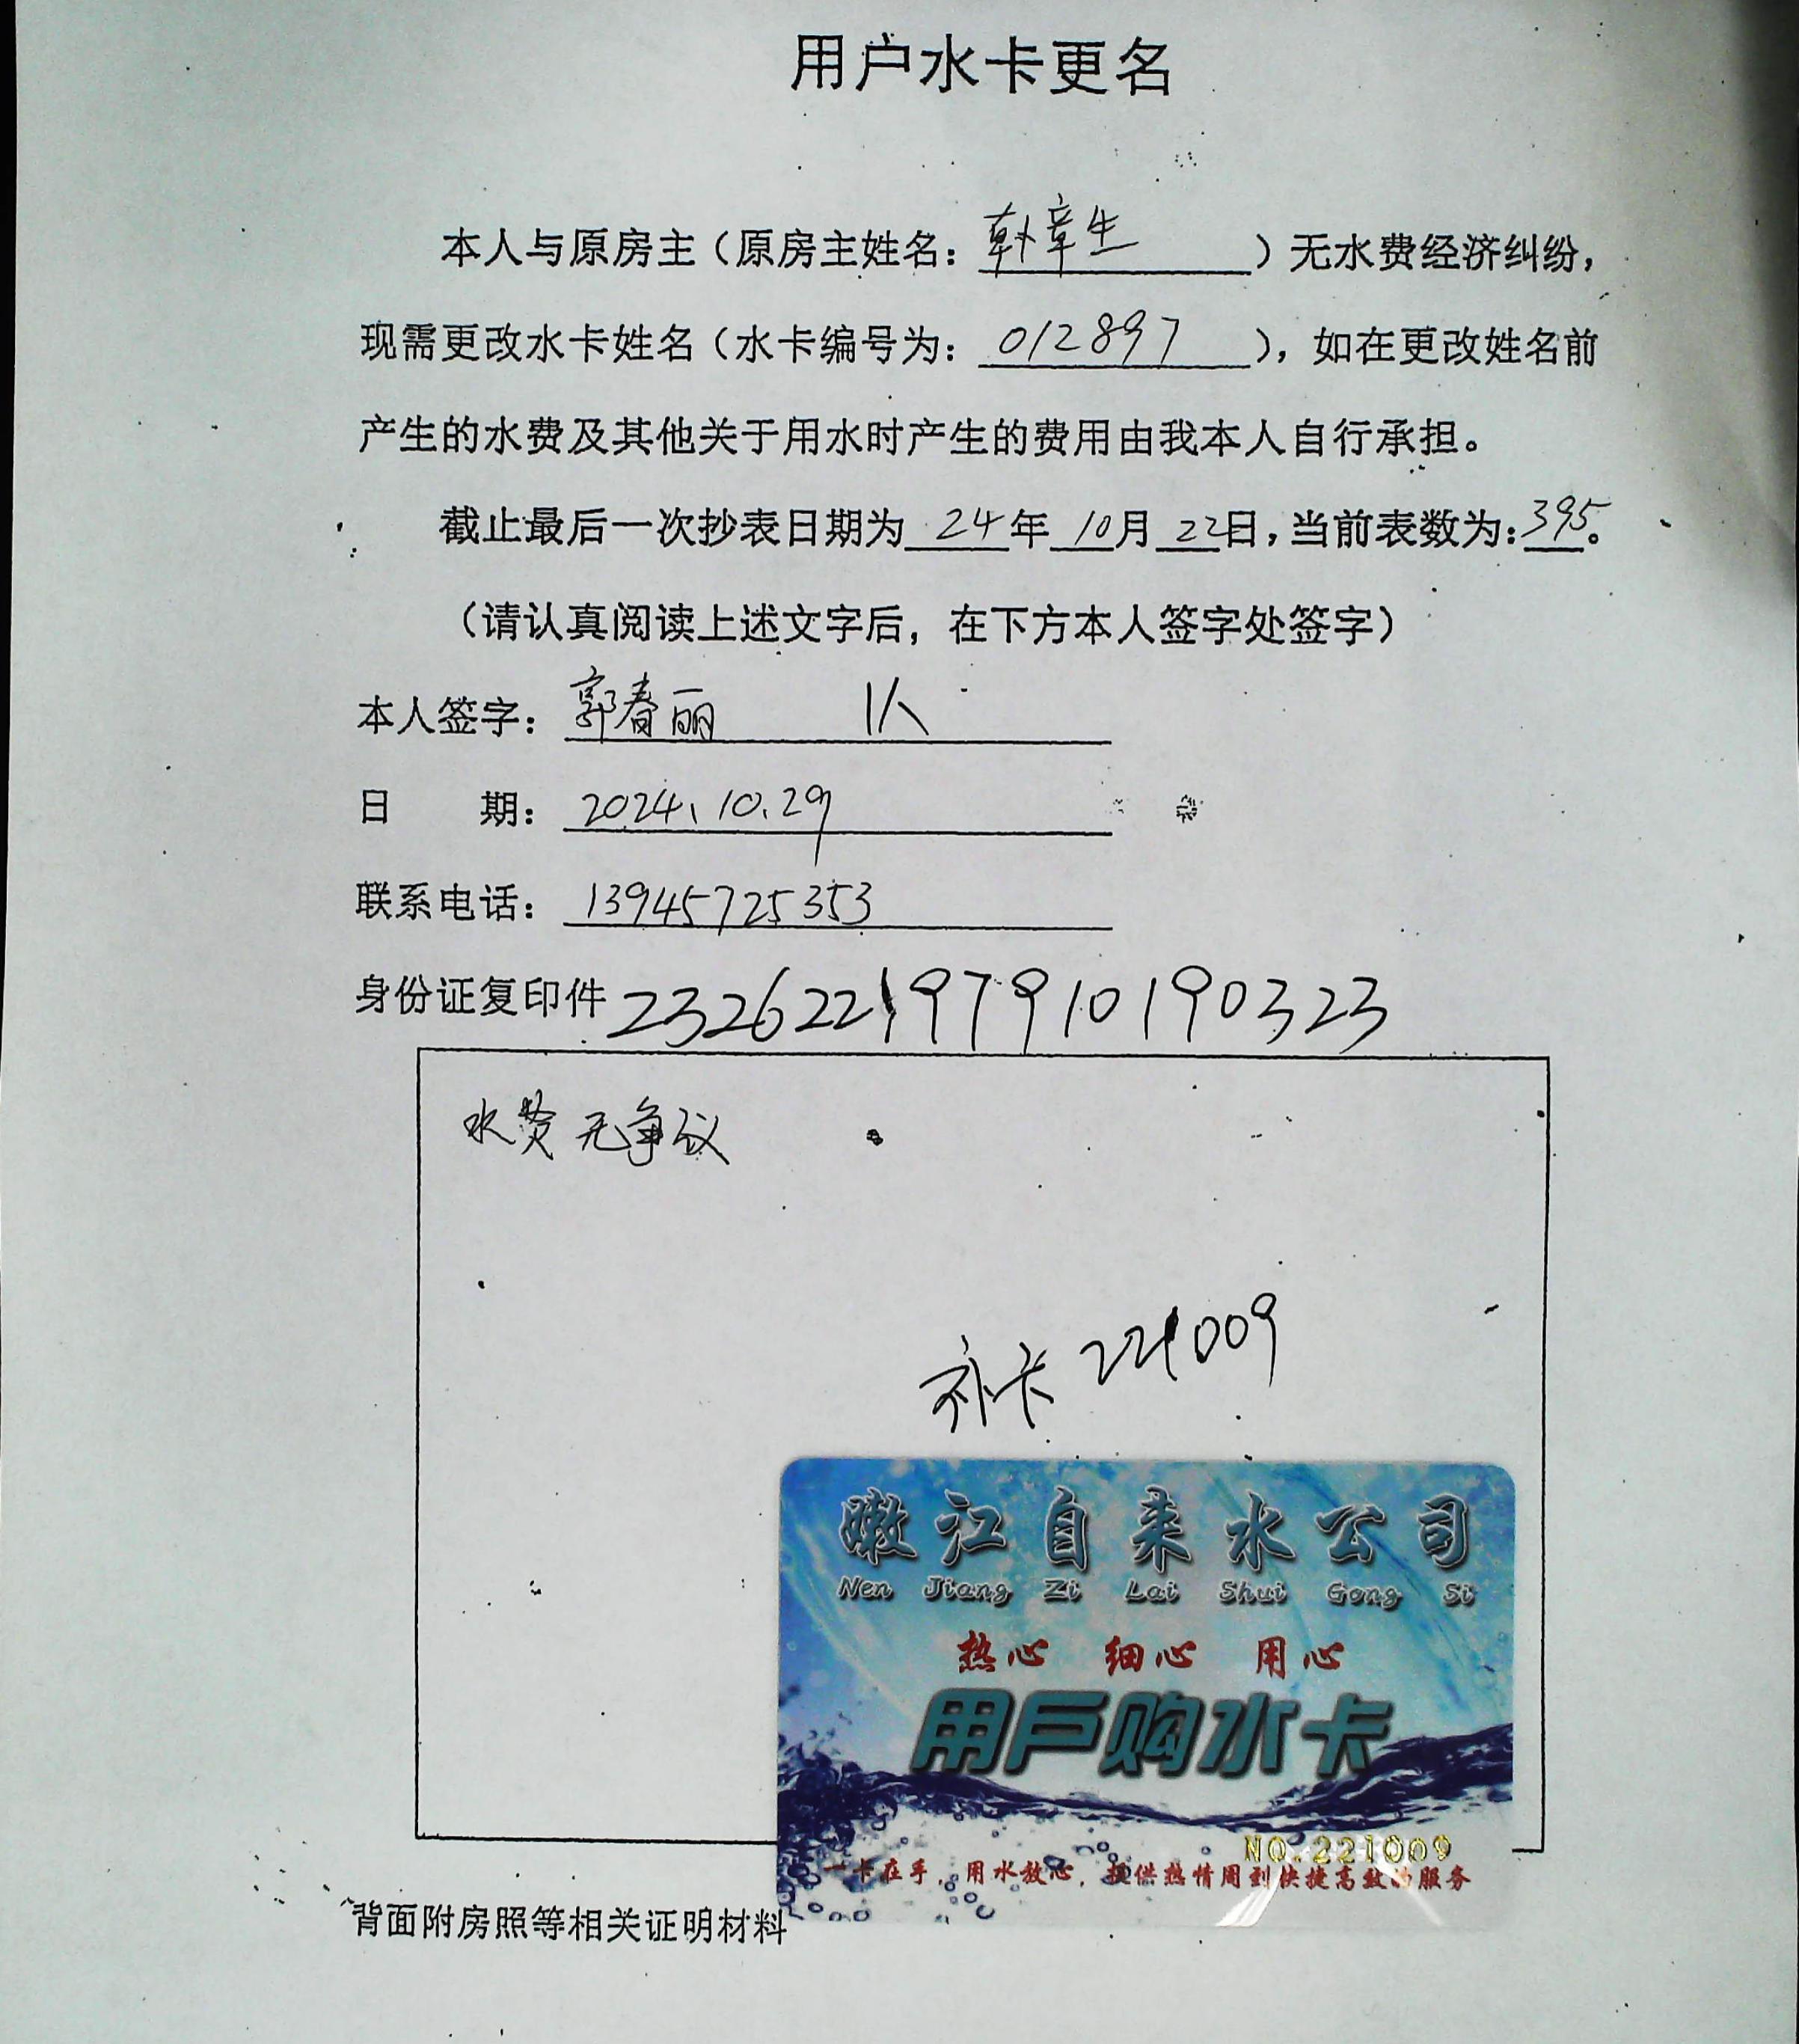 用户水卡更名
本人与原房主（原房主姓名：韩章生）无水费经济纠纷，
现需更改水卡姓名（水卡编号为：012897），如在更改姓名前
产生的水费及其他关于用水时产生的费用由我本人自行承担。
截止最后一次抄表日期为 24年 10月 22日，当前表数为：395。
（请认真阅读上述文字后，在下方本人签字处签字）
本人签字：郭春丽 1人
日 期：2024、10.29
联系电话：13945725353
身份证复印件 232622197910190323
水费无争议
补卡 221009
嫩江自来水公司
Nen Jiang Zi Lai Shui Gong Si
热心 细心 用心
用戶购水卡
NO.221009
一卡在手，用水放心，提供热情周到快捷高效的服务
背面附房照等相关证明材料